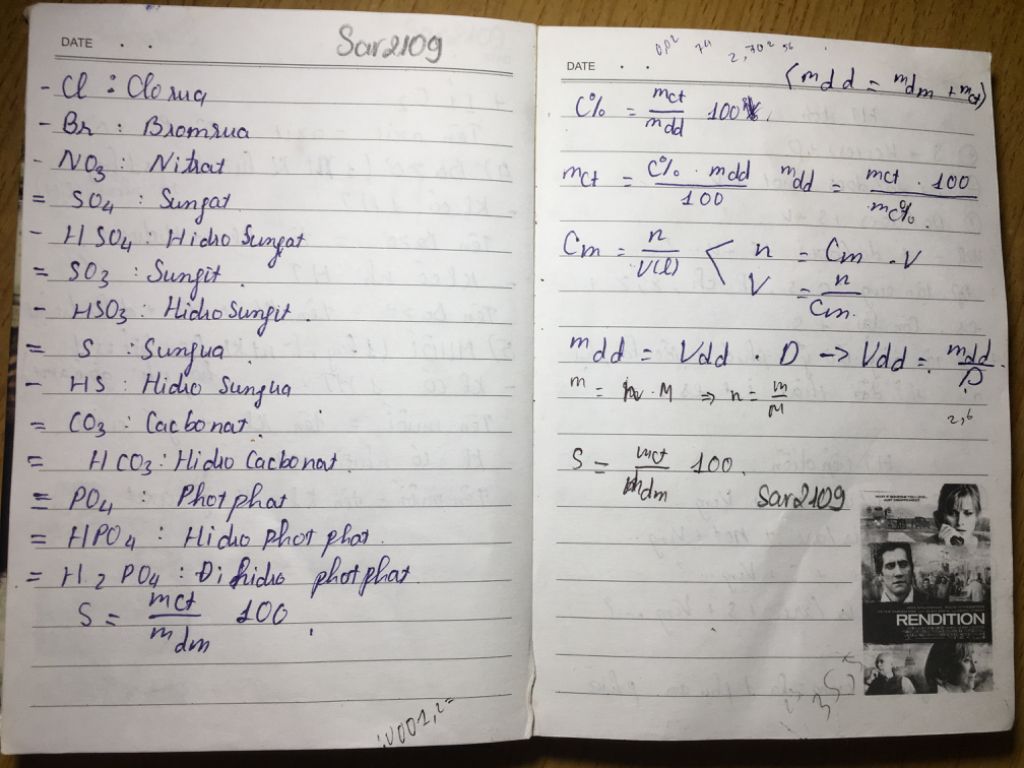 DATE . .
Sar2109
- Cl : Clorua
- Br : Bromrua
- NO3 : Nitrat
= SO4 : Sungat
- HSO4 : Hidro Sungat
= SO3 : Sungit
- HSO3 : Hidro Sungit.
= S : Sungua
- HS : Hidro Sungua
= CO3 : Cacbonat.
= HCO3 : Hidro Cacbonat.
= PO4 : Photphat
= HPO4 : Hidro photphat.
= H2PO4 : Đi hidro photphat
S = mct / mdm 100
DATE . .
(mdd = mdm + mct)
C% = mct / mdd 100%.
mct = C% . mdd / 100 mdd = mct . 100 / mc%.
Cm = n / V(l) < n = Cm . V
V = n / Cm.
mdd = Vdd . D -> Vdd = mdd / D.
m = n . M => n = m / M
2,6
S = mct / mdm 100.
Sar2109
RENDITION